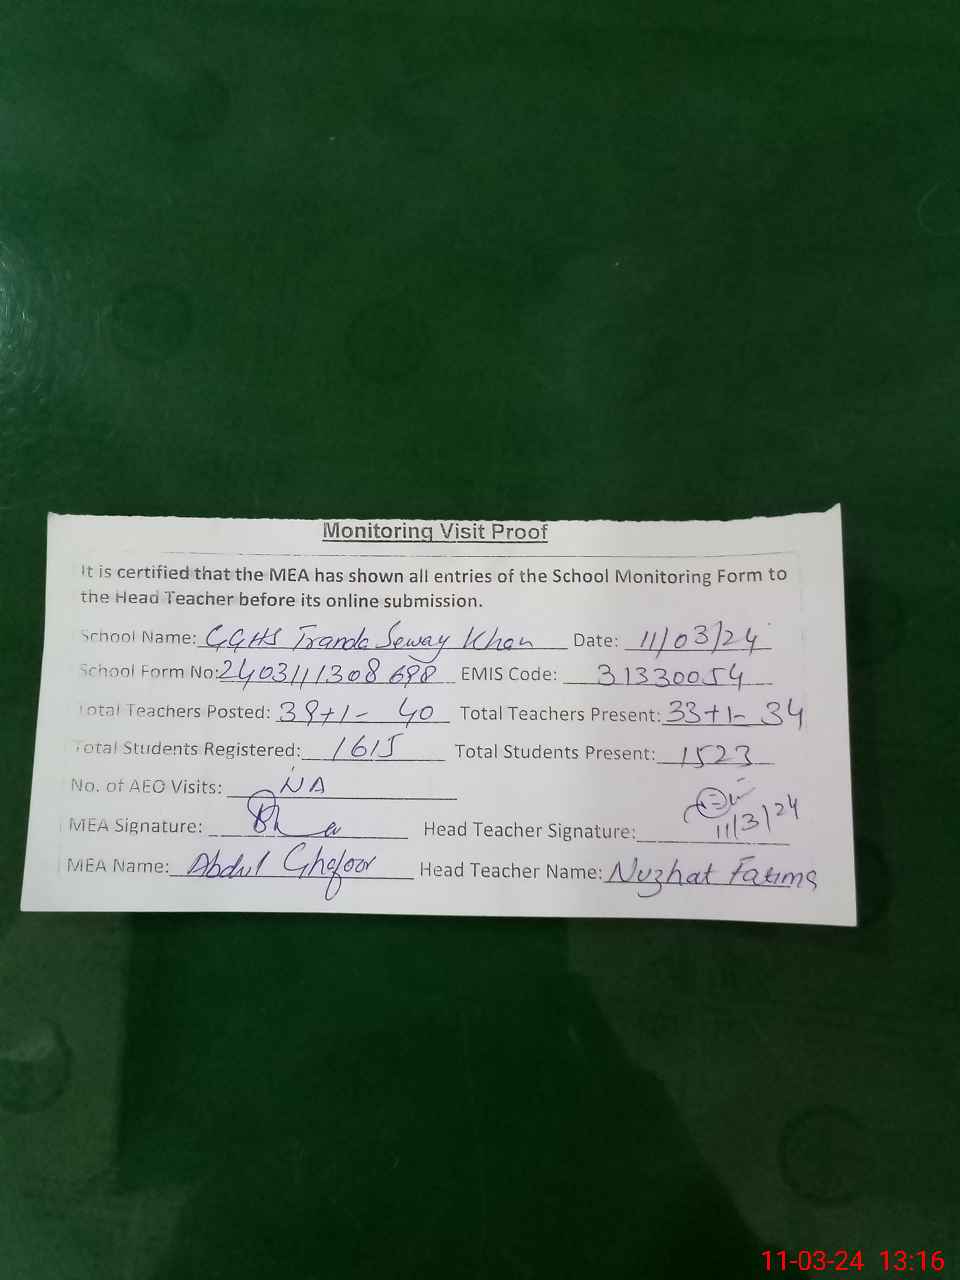 Monitoring Visit Proof
It is certified that the MEA has shown all entries of the School Monitoring Form to
the Head Teacher before its online submission.
School Name: GGHS Tranda Seway Khan Date: 11/03/24
School Form No: 2403111308698 EMIS Code: 31330054
Total Teachers Posted: 39+1- 40 Total Teachers Present: 33+1- 34
Total Students Registered: 1615 Total Students Present: 1523
No. of AEO Visits: NA
MEA Signature: Head Teacher Signature: 11/3/24
MEA Name: Abdul Ghafoor Head Teacher Name: Nuzhat Fatima
11-03-24 13:16